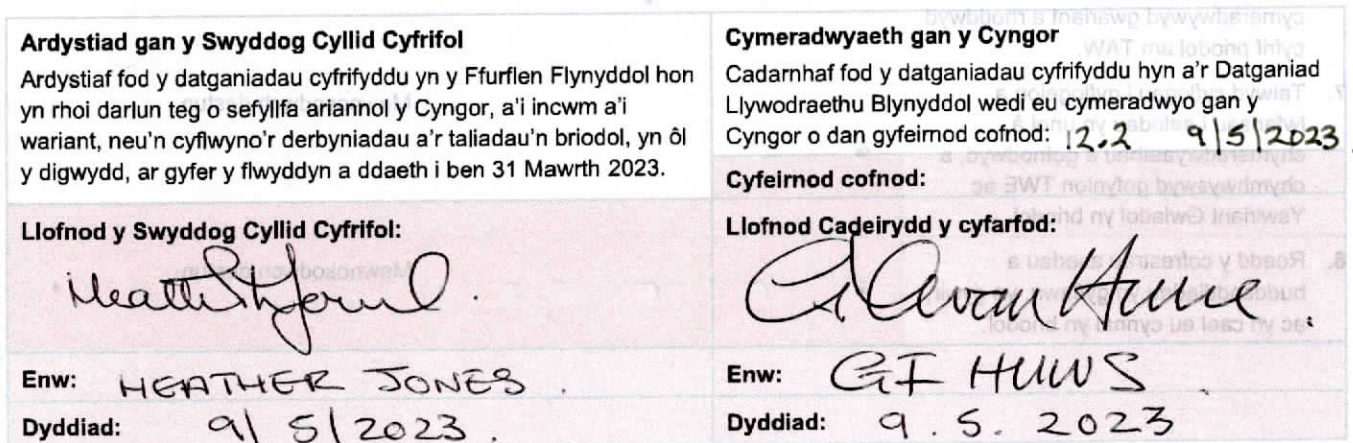 Ardystiad gan y Swyddog Cyllid Cyfrifol
Ardystiaf fod y datganiadau cyfrifyddu yn y Ffurflen Flynyddol hon
yn rhoi darlun teg o sefyllfa ariannol y Cyngor, a'i incwm a'i
wariant, neu'n cyflwyno'r derbyniadau a'r taliadau'n briodol, yn ôl
y digwydd, ar gyfer y flwyddyn a ddaeth i ben 31 Mawrth 2023.
Llofnod y Swyddog Cyllid Cyfrifol:
Enw: HEATHER JONES.
Dyddiad: 9/5/2023.
Cymeradwyaeth gan y Cyngor
Cadarnhaf fod y datganiadau cyfrifyddu hyn a'r Datganiad
Llywodraethu Blynyddol wedi eu cymeradwyo gan y
Cyngor o dan gyfeirnod cofnod: 12.2 9/5/2023
Cyfeirnod cofnod:
Llofnod Cadeirydd y cyfarfod:
Enw: GI HUWS
Dyddiad: 9.5.2023